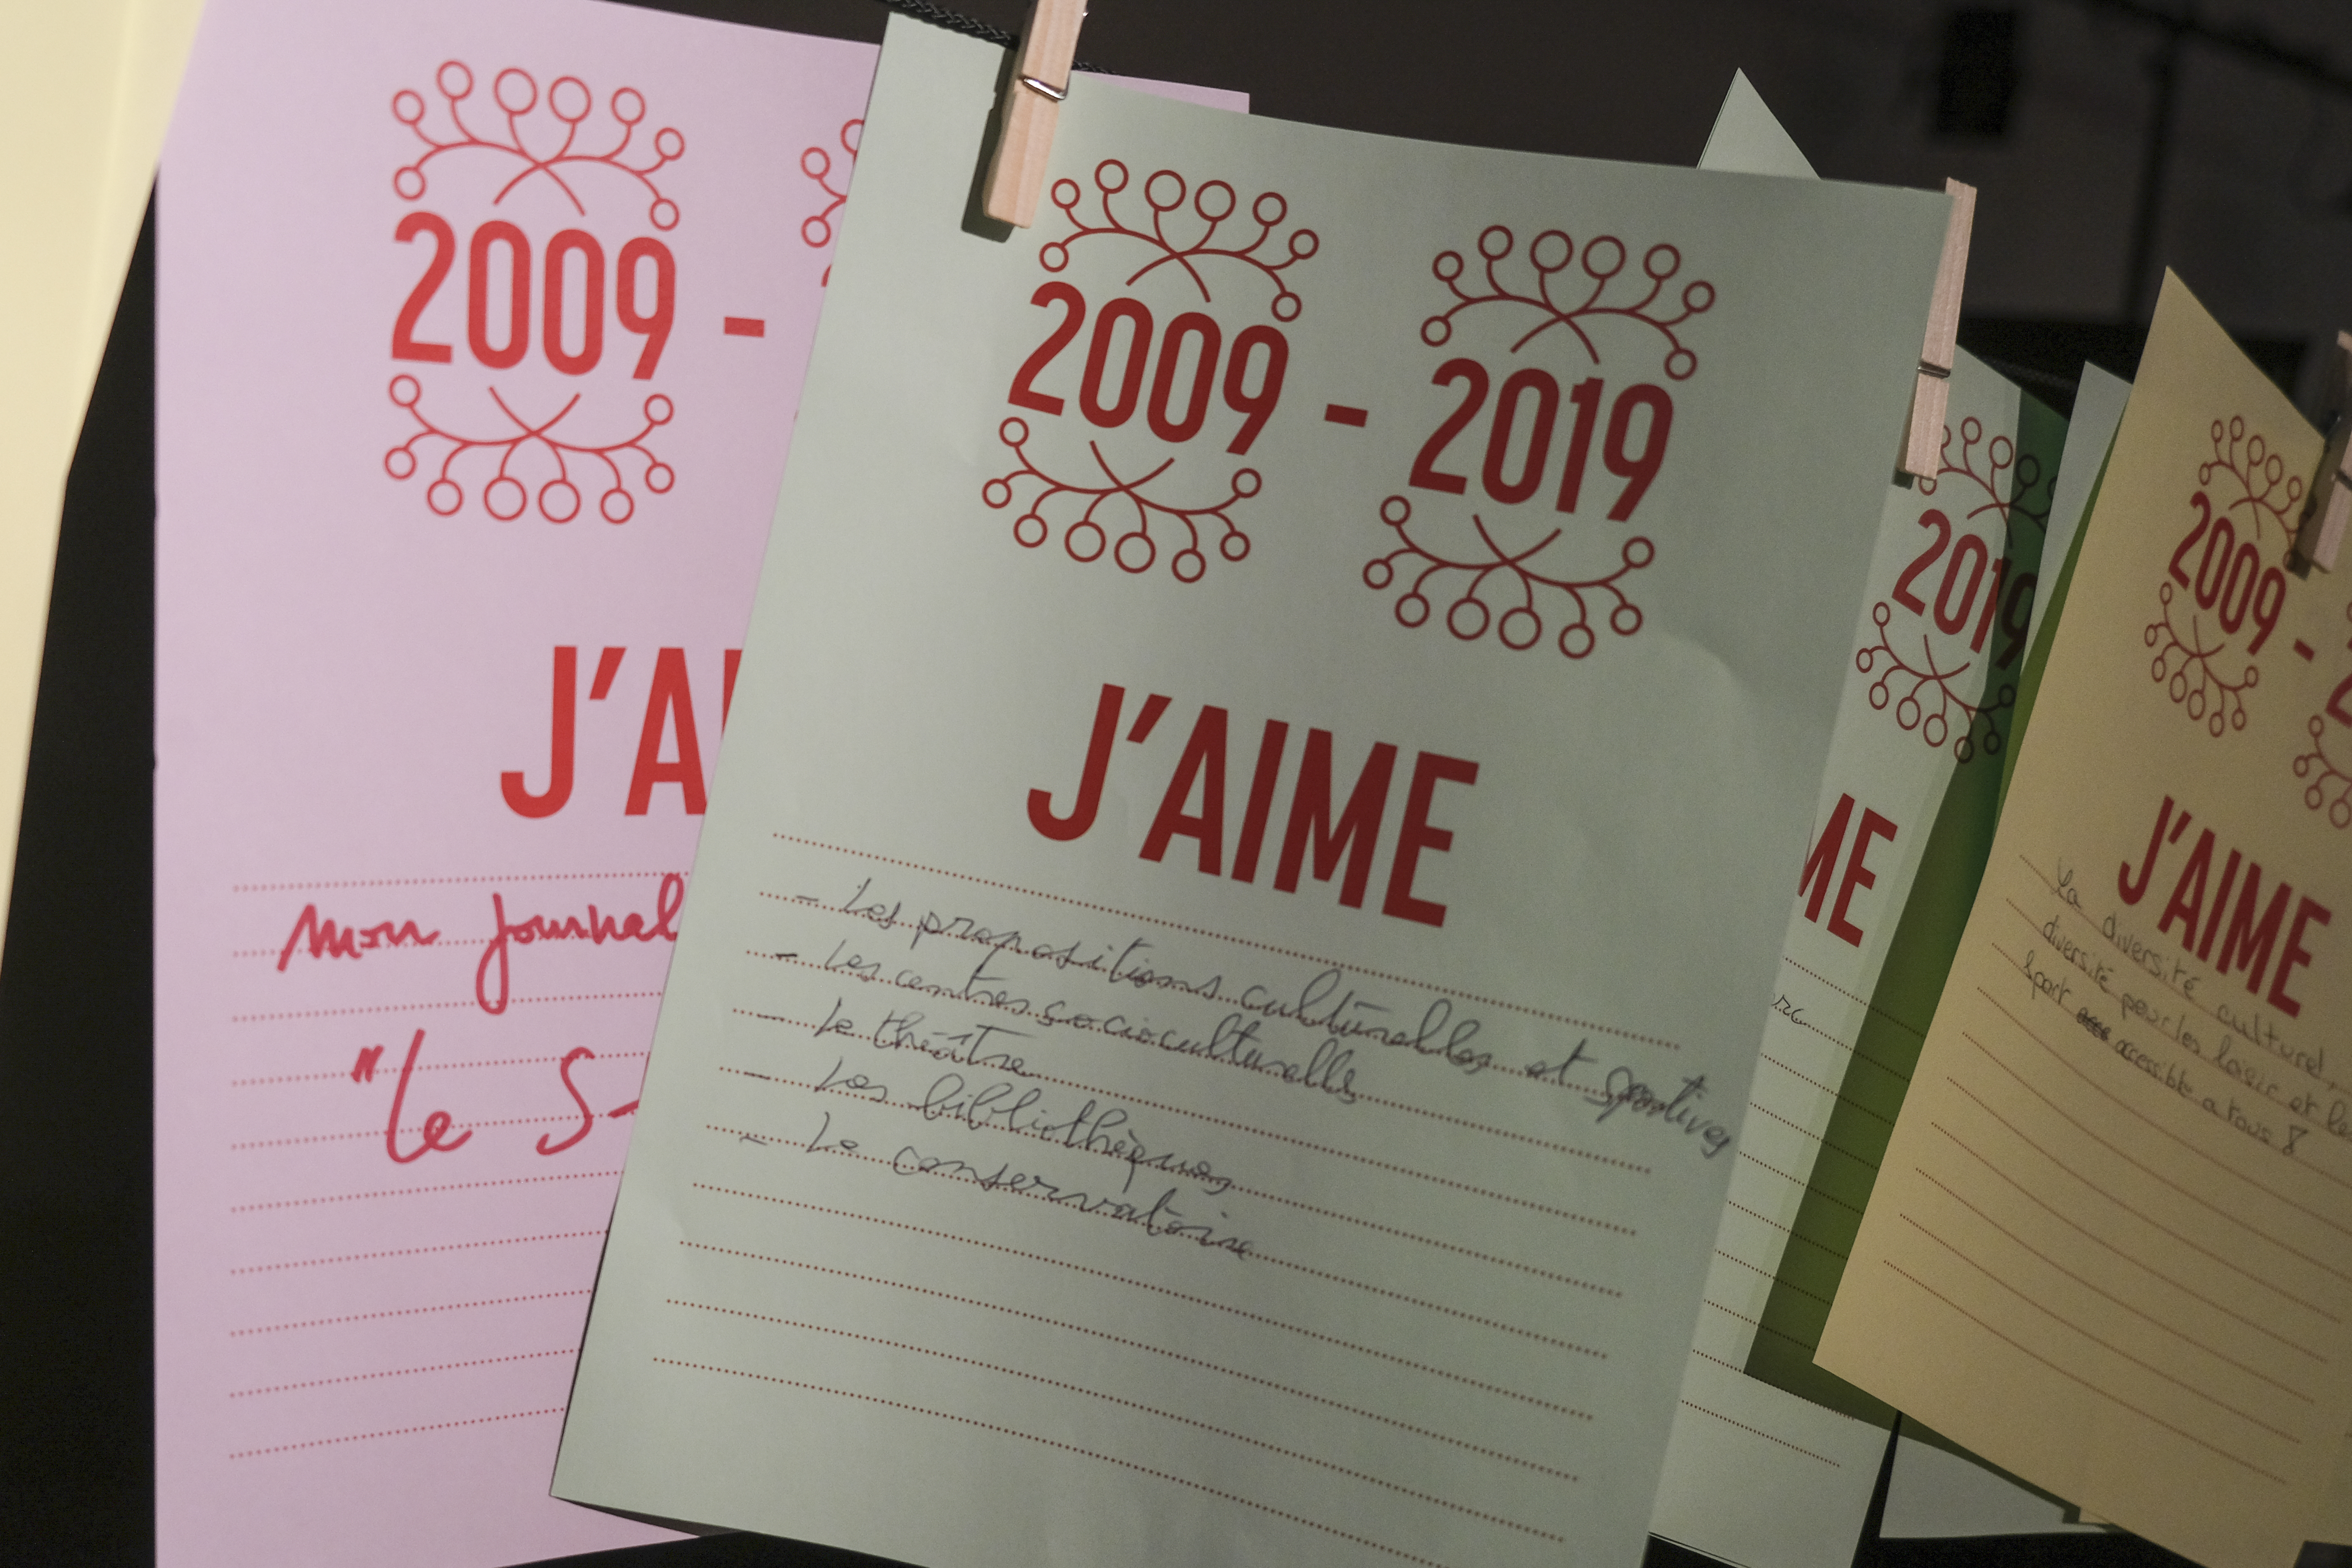 2009 -
J'A
mon journal
"le S-
2009 - 2019
J'AIME
- Les propositions culturelles et sportives
- Les centres socioculturelles
- Le théâtre
- Les bibliothèques
- Le conservatoire
2019
ME
2009 - 2
J'AIME
La diversité culturel,
diversité pour les loisir et le
sport accessible a tous